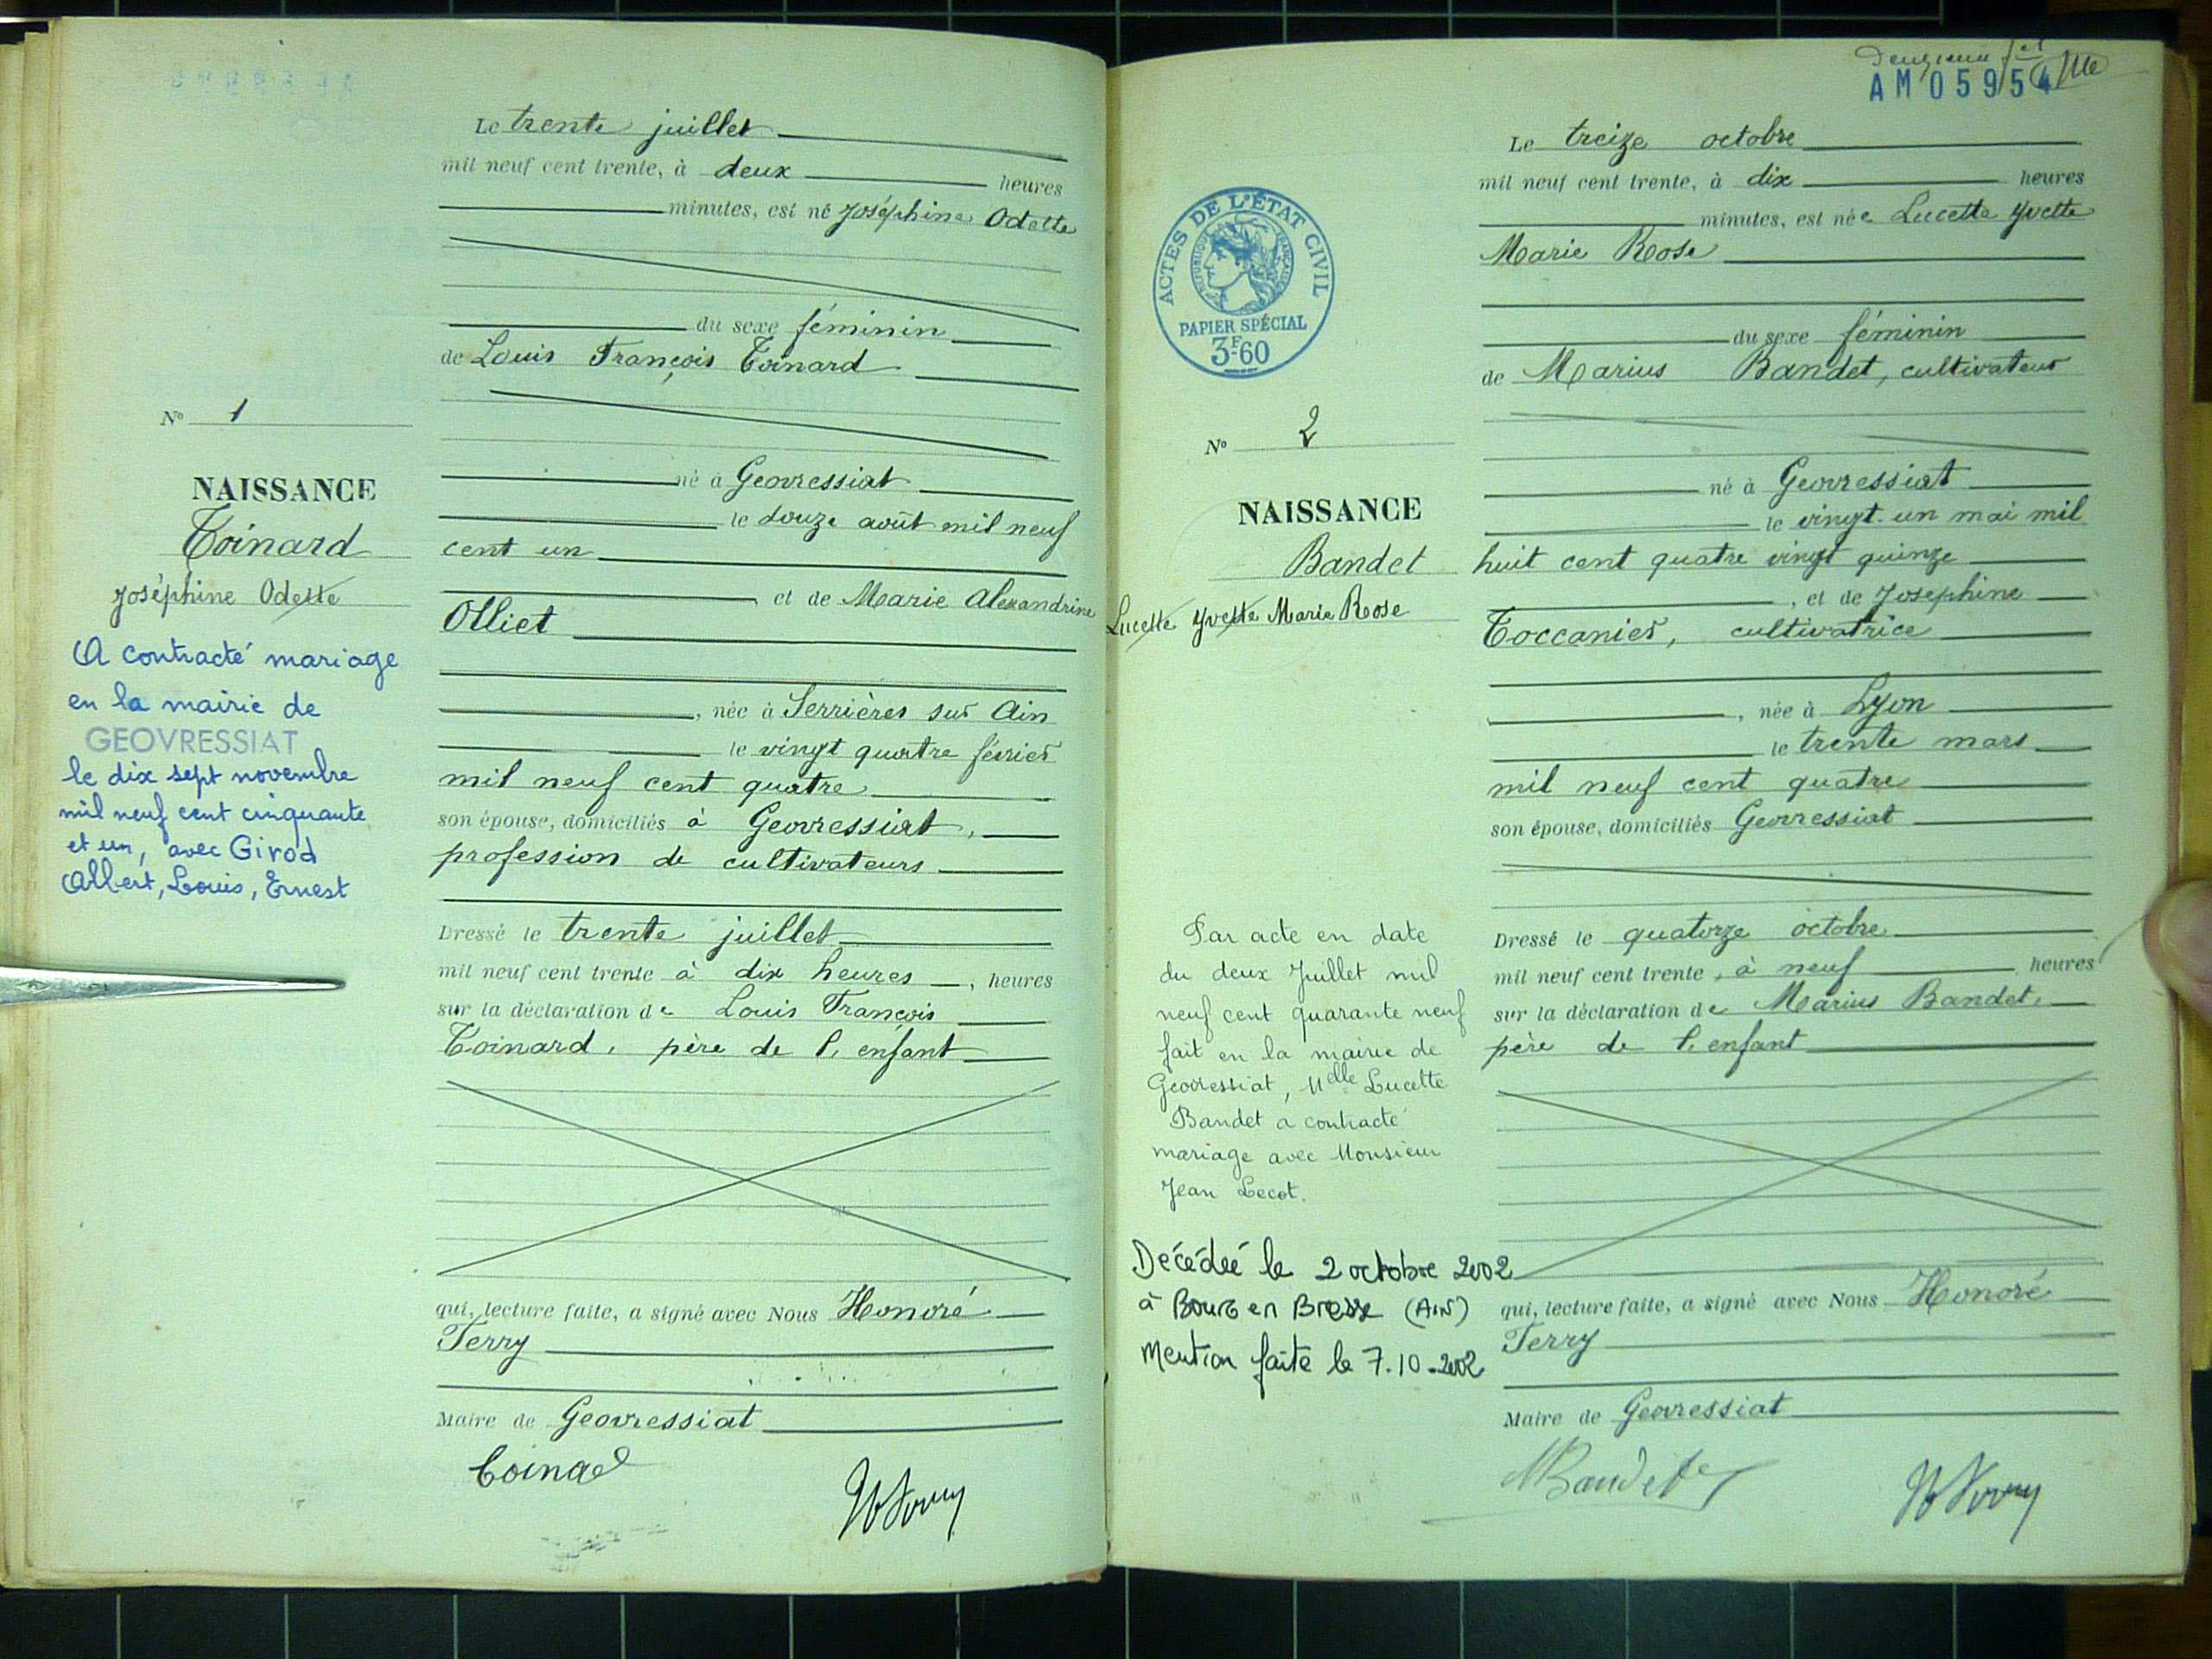 Le trente juillet
mil neuf cent trente, à deux heures
minutes, est né Joséphine Odette
du sexe féminin
de Louis François Toinard
né à Geovressiat
le douze août mil neuf
cent un
et de Marie Alexandrine
Olliet
, née à Serrières sur Ain
le vingt quatre février
mil neuf cent quatre
son épouse, domiciliés à Geovressiat,
profession de cultivateurs
Dressé le trente juillet
mil neuf cent trente à dix heures, heures
sur la déclaration de Louis François
Toinard, père de l'enfant
qui, lecture faite, a signé avec Nous Honoré
Ferry
Maire de Geovressiat
Nº 1
NAISSANCE
Toinard
Joséphine Odette
A contracté mariage
en la mairie de
GEOVRESSIAT
le dix sept novembre
mil neuf cent cinquante
et un, avec Girod
Albert, Louis, Ernest
AM05954
Le treize octobre
mil neuf cent trente, à dix heures
minutes, est née Lucette Yvette
Marie Rose
du sexe féminin
de Marius Bandet, cultivateur
né à Geovressiat
le vingt-un mai mil
huit cent quatre vingt quinze
, et de Josephine
Toccanier, cultivatrice
, née à Lyon
le trente mars
mil neuf cent quatre
son épouse, domiciliés Geovressiat
Dressé le quatorze octobre
mil neuf cent trente, à neuf heures
sur la déclaration de Marius Bandet,
père de l'enfant
qui, lecture faite, a signé avec Nous Honoré
Ferry
Maire de Geovressiat
ACTES DE L'ÉTAT CIVIL
RÉPUBLIQUE FRANÇAISE
PAPIER SPÉCIAL
3F60
Nº 2
NAISSANCE
Bandet
Lucette Yvette Marie Rose
Par acte en date
du deux Juillet mil
neuf cent quarante neuf
fait en la mairie de
Geovressiat, Melle Lucette
Bandet a contracté
mariage avec Monsieur
Jean Lecot.
Décédée le 2 octobre 2002
à Bourg en Bresse (AIN)
Mention faite le 7.10.2002